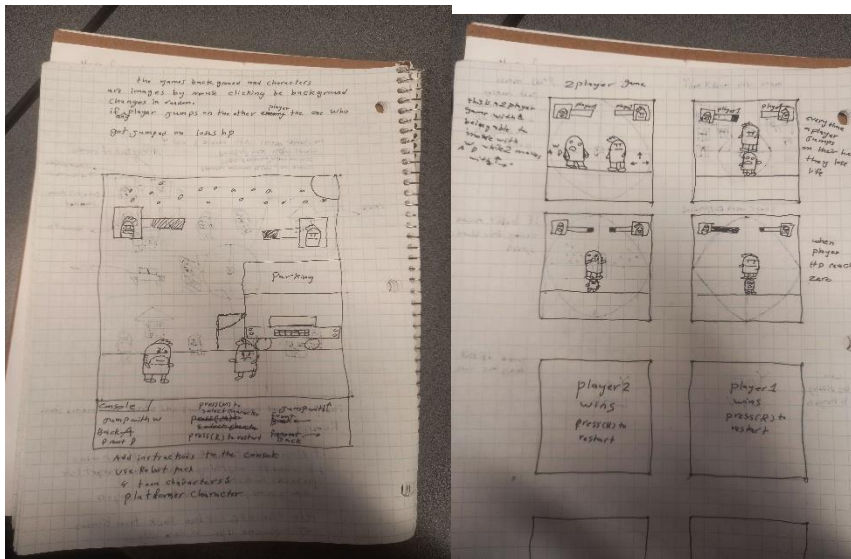 the games background and characters
are images by mouse clicking he background
changes in random.
if player jumps on the other player the one who
got jumped on loses hp
Parking
Console
jump with w
Back A
Front D
press(M)to
press(R) to restart
jump with ↑
Front
Back
Add instructions to the console
use Robot pack
& toon characters 1
platformer character
2 player game
this is a 2 player
game with
being able to
with
A D while 2 moves
with
player1
player2
W
A D
player1
player2
every time
a player
jumps
on their
they lose
life
when
player
HP reach
zero
player2
wins
press(R) to
restart
player1
wins
press(R) to
restart